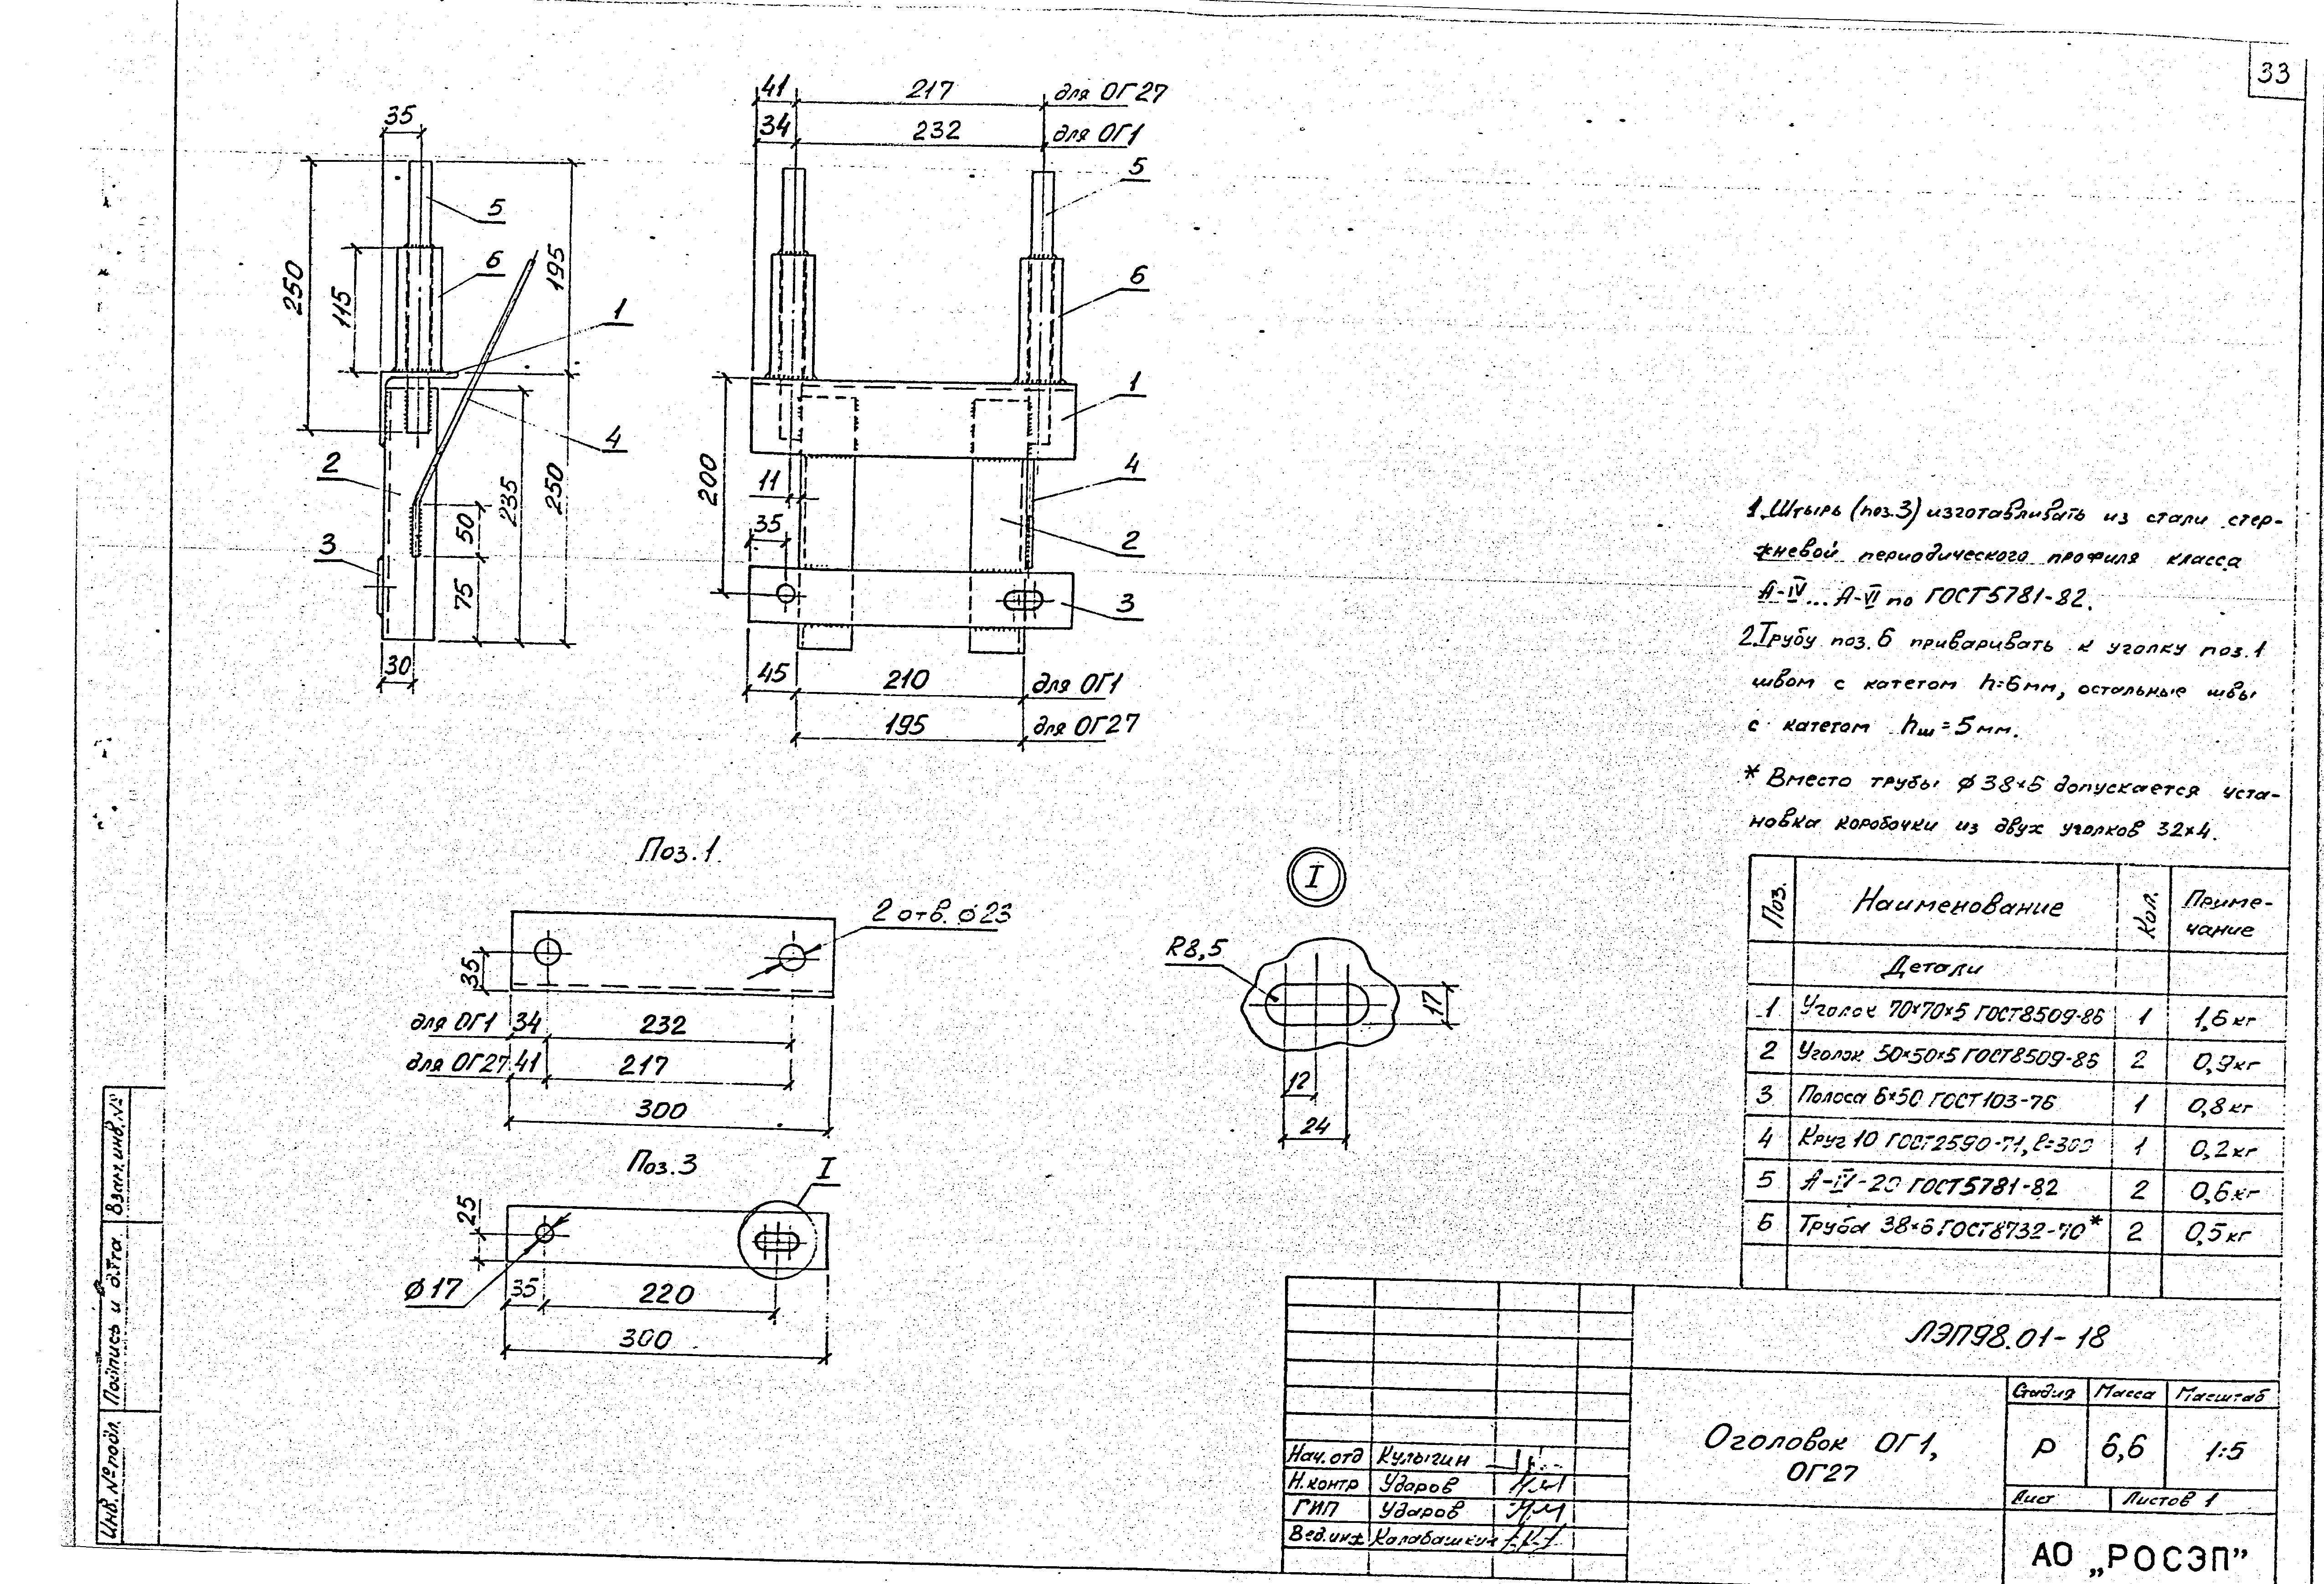 33
41 217 для ОГ27
34 232 для ОГ1
35
5
6
1
4
2
3
250
115
195
235
250
50
75
30
5
6
1
4
2
3
200
11
35
45 210 для ОГ1
195 для ОГ27
1. Штырь (поз.3) изготавливать из стали стер-
жневой периодического профиля класса
А-IV... А-VI по ГОСТ 5781-82.
2. Трубу поз. 6 приваривать к уголку поз. 1
швом с катетом h=6мм, остальные швы
с катетом hш=5мм.
* Вместо трубы ø38×5 допускается уста-
новка коробочки из двух уголков 32×4.
Поз. 1
2 отв. ø23
35
для ОГ1 34 232
для ОГ27 41 217
300
Поз. 3
I
25
ø17
35 220
300
I
R8,5
17
12
24
Поз. Наименование Кол. Приме-
чание
Детали
1 Уголок 70×70×5 ГОСТ8509-86 1 1,6 кг
2 Уголок 50×50×5 ГОСТ8509-86 2 0,9 кг
3 Полоса 6×50 ГОСТ103-76 1 0,8 кг
4 Круг 10 ГОСТ2590-71, ℓ=300 1 0,2 кг
5 А-IV-20 ГОСТ5781-82 2 0,6 кг
6 Труба 38×6 ГОСТ8732-70* 2 0,5 кг
ЛЭП98.01-18
Оголовок ОГ1,
ОГ27
Стадия Масса Масштаб
Р 6,6 1:5
Лист Листов 1
АО „РОСЭП"
Нач. отд Кулыгин
Н. контр Ударов
ГИП Ударов
Вед. инж Калабашкин
Взам. инв. №
Подпись и дата
Инв. № подл.